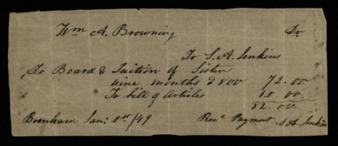 Wm A. Browning Dr
To S. A. Jenkins
To Board & Tuition of Sister
nine months @ 8.00 72.00
To bill of Articles 10.00
82.00
Brenham Jan: 1st /49 Recd Payment S A Jenkins